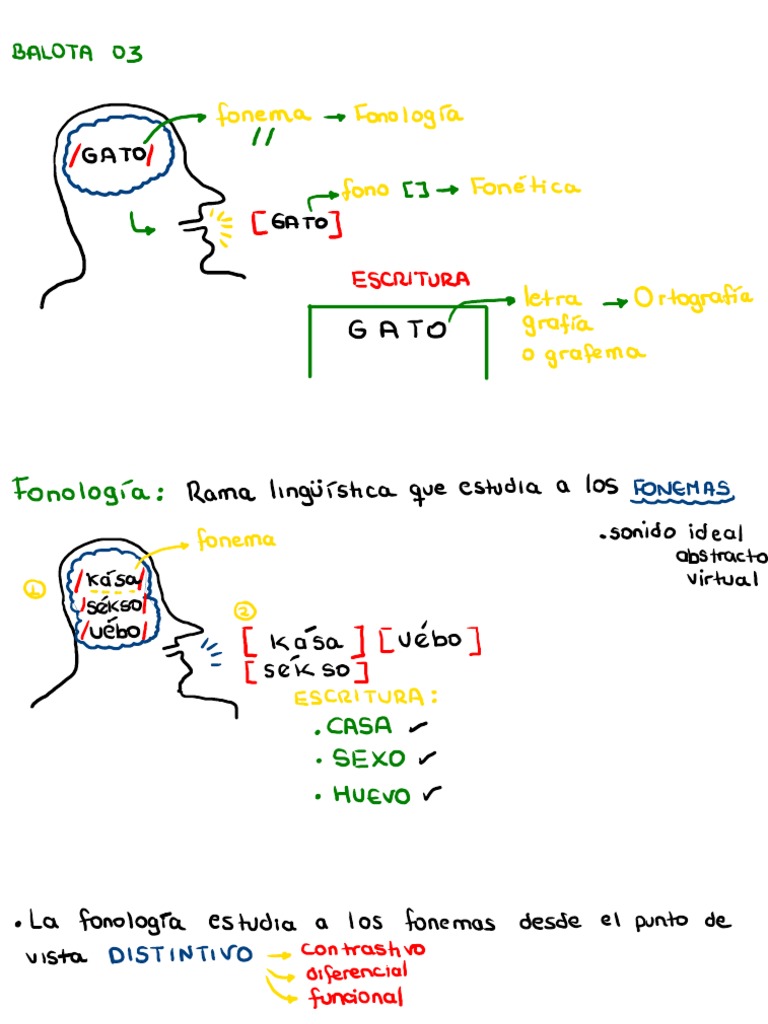 BALOTA 03
fonema → Fonología
/GATO/ //
fono [ ] → Fonética
[GATO]
ESCRITURA
letra → Ortografía
GATO grafía
o grafema
Fonología: Rama lingüística que estudia a los FONEMAS
fonema
• sonido ideal
abstracto
virtual
1
/kása/
/sékso/
/uébo/
2
[kása] [uébo]
[sékso]
ESCRITURA:
• CASA ✓
• SEXO ✓
• HUEVO ✓
• La fonología estudia a los fonemas desde el punto de
vista DISTINTIVO → contrastivo
→ diferencial
→ funcional